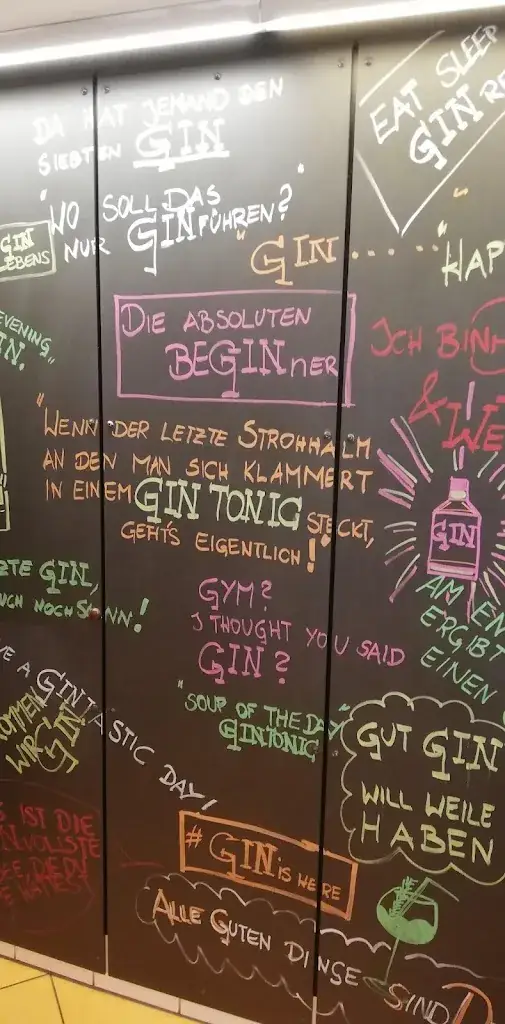 DA HAT JEMAND DEN
SIEBTEN GIN
EAT SLEEP
GIN RE
"WO SOLL DAS
NUR GIN FÜHREN?"
GIN
LEBENS
"GIN ....."
"HAP
EVENING"
IN."
DIE ABSOLUTEN
BEGINNER
ICH BIN
& WE
"WENN DER LETZTE STROHHALM
AN DEN MAN SICH KLAMMERT
IN EINEM GIN TONIC STECKT,
GEHT'S EIGENTLICH!"
GIN
ZTE GIN,
UCH NOCH
GYM?
I THOUGHT YOU SAID
GIN?
AM EN
ERGIBT
EINEN
"SOUP OF THE DAY"
GINTONIC
VE A GINTASTIC DAY!
OMMEN
WIR GIN
GUT GIN
WILL WEILE
HABEN
S IST DIE
NVOLLSTE
# GIN IS HERE
ALLE GUTEN DINGE SIND